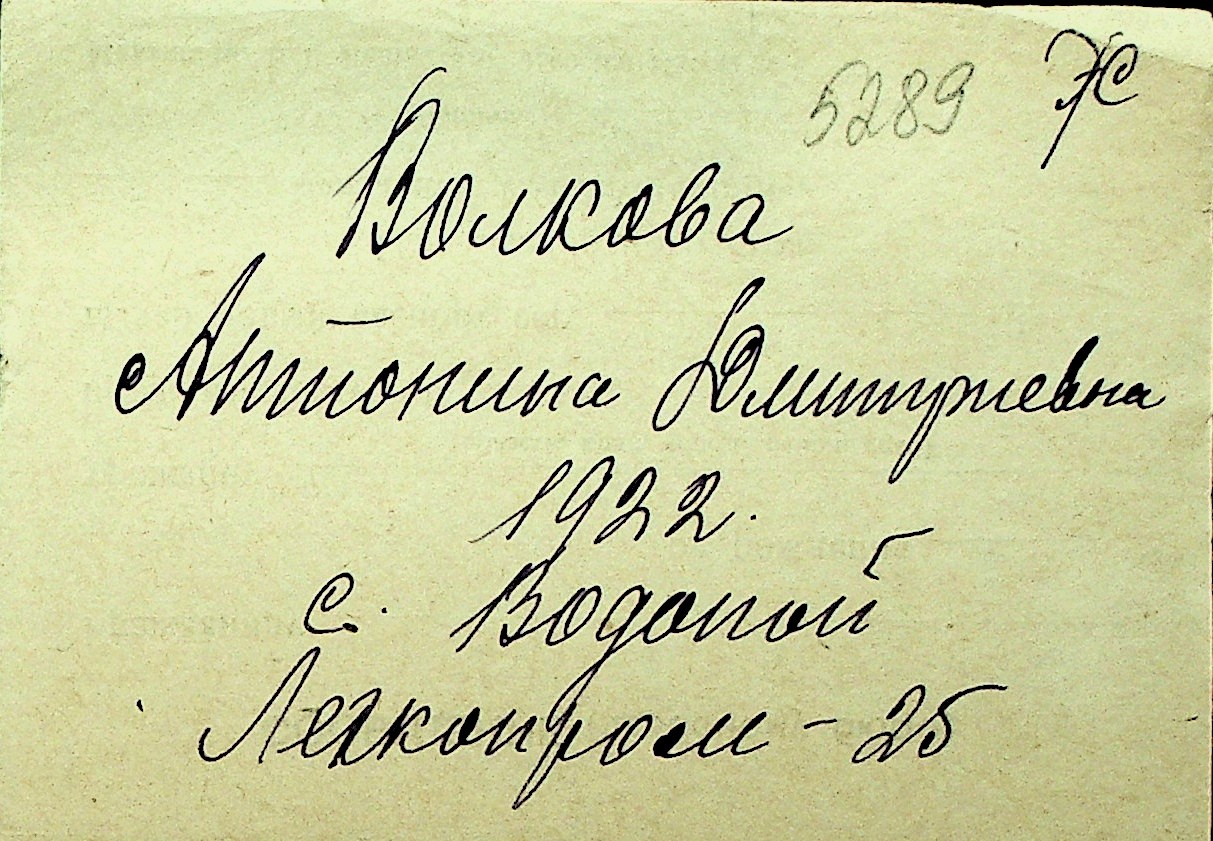 5289 Ж
Волкова
Антонина Дмитриевна
1922.
с. Водопой
Легкопром - 25